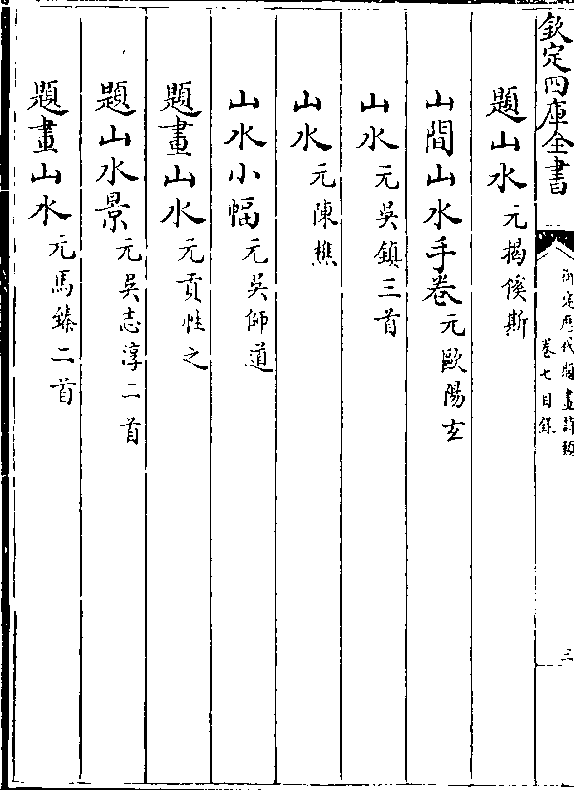 欽定四庫全書
御定歷代題畫詩類
卷七目錄
三
題山水元揭傒斯
山間山水手卷元歐陽玄
山水元吳鎮三首
山水元陳樵
山水小幅元吳師道
題畫山水元貢性之
題山水景元吳志淳二首
題畫山水元馬臻二首